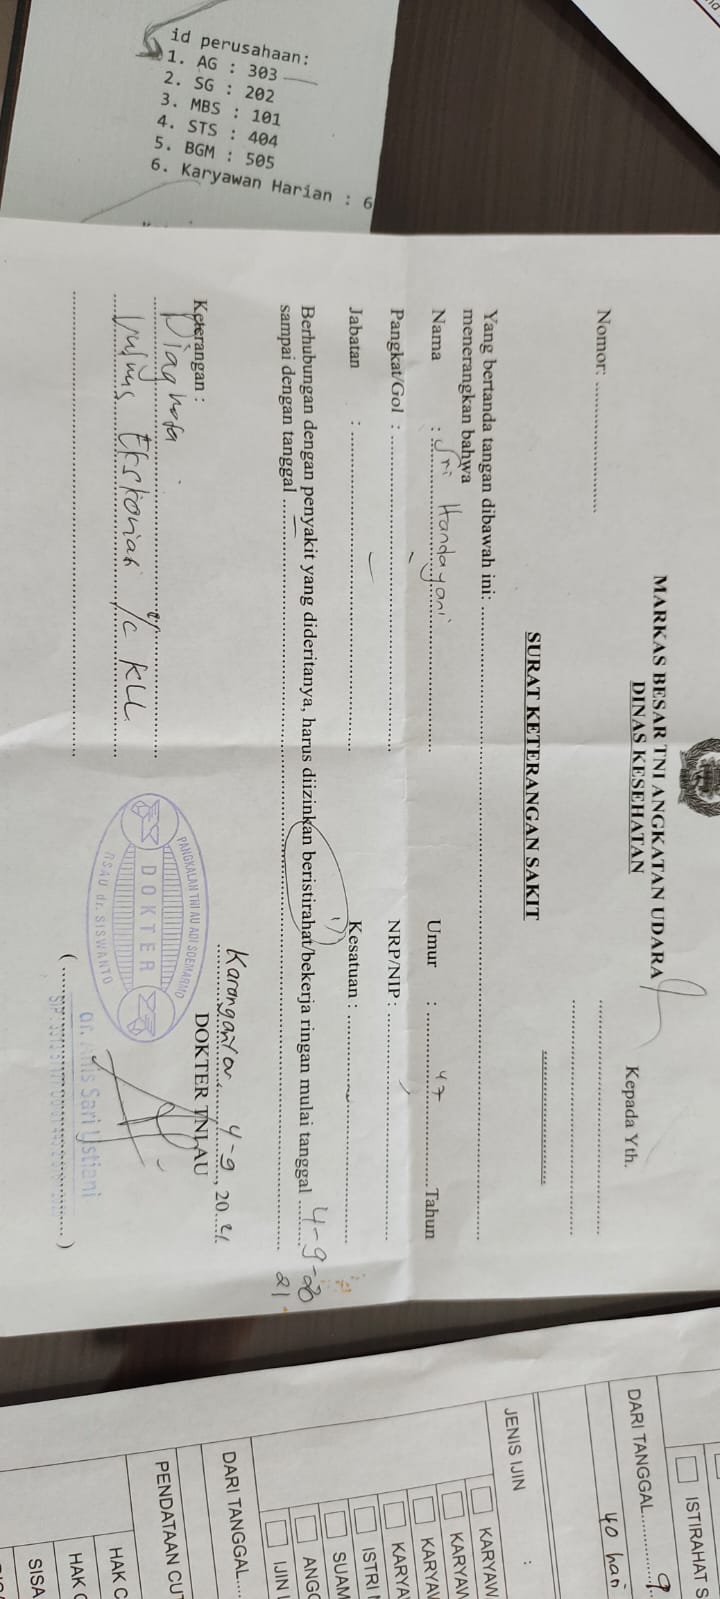 id perusahaan:
1. AG : 303
2. SG : 202
3. MBS : 101
4. STS : 404
5. BGM : 505
6. Karyawan Harian : 6
MARKAS BESAR TNI ANGKATAN UDARA
DINAS KESEHATAN
Kepada Yth.
Nomor: ....................
SURAT KETERANGAN SAKIT
Yang bertanda tangan dibawah ini: ....................
menerangkan bahwa
Nama : Sri Handayani Umur : 47 Tahun
Pangkat/Gol : NRP/NIP :
Jabatan : Kesatuan :
Berhubungan dengan penyakit yang dideritanya, harus diizinkan beristirahat/bekerja ringan mulai tanggal 4-9-20
21
sampai dengan tanggal
Karanganyar, 4-9, 20 21
DOKTER TNI AU
Keterangan :
Diagnosa
Vulnus Ekskoriasi e/c KLL
PANGKALAN TNI AU ADI SOEMARMO
DOKTER
RSAU dr. SISWANTO
dr. Anis Sari Ustiani
DARI TANGGAL 9
ISTIRAHAT S
40 hari
JENIS IJIN :
KARYAW
KARYAW
KARYAW
KARYA
ISTRI
SUAM
ANGG
IJIN
DARI TANGGAL
PENDATAAN CUT
HAK C
HAK
SISA